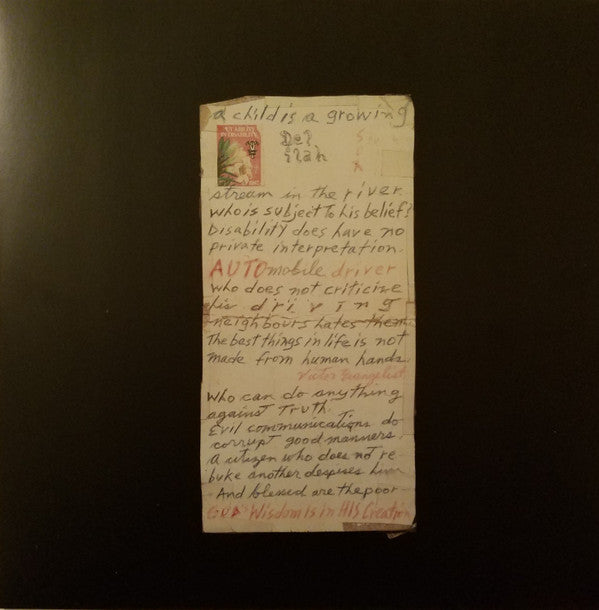 a child is a growing
Del
ilah
stream in the river
who is subject to his belief?
Disability does have no
private interpretation.
AUTOmobile driver
who does not criticize
his driving
neighbours hates them.
The best things in life is not
made from human hands.
Victor Evangelist
Who can do anything
against Truth.
Evil communications do
corrupt good manners.
A citizen who does not re
buke another despises him
And blessed are the poor
GOD'S Wisdom is in HIS Creation